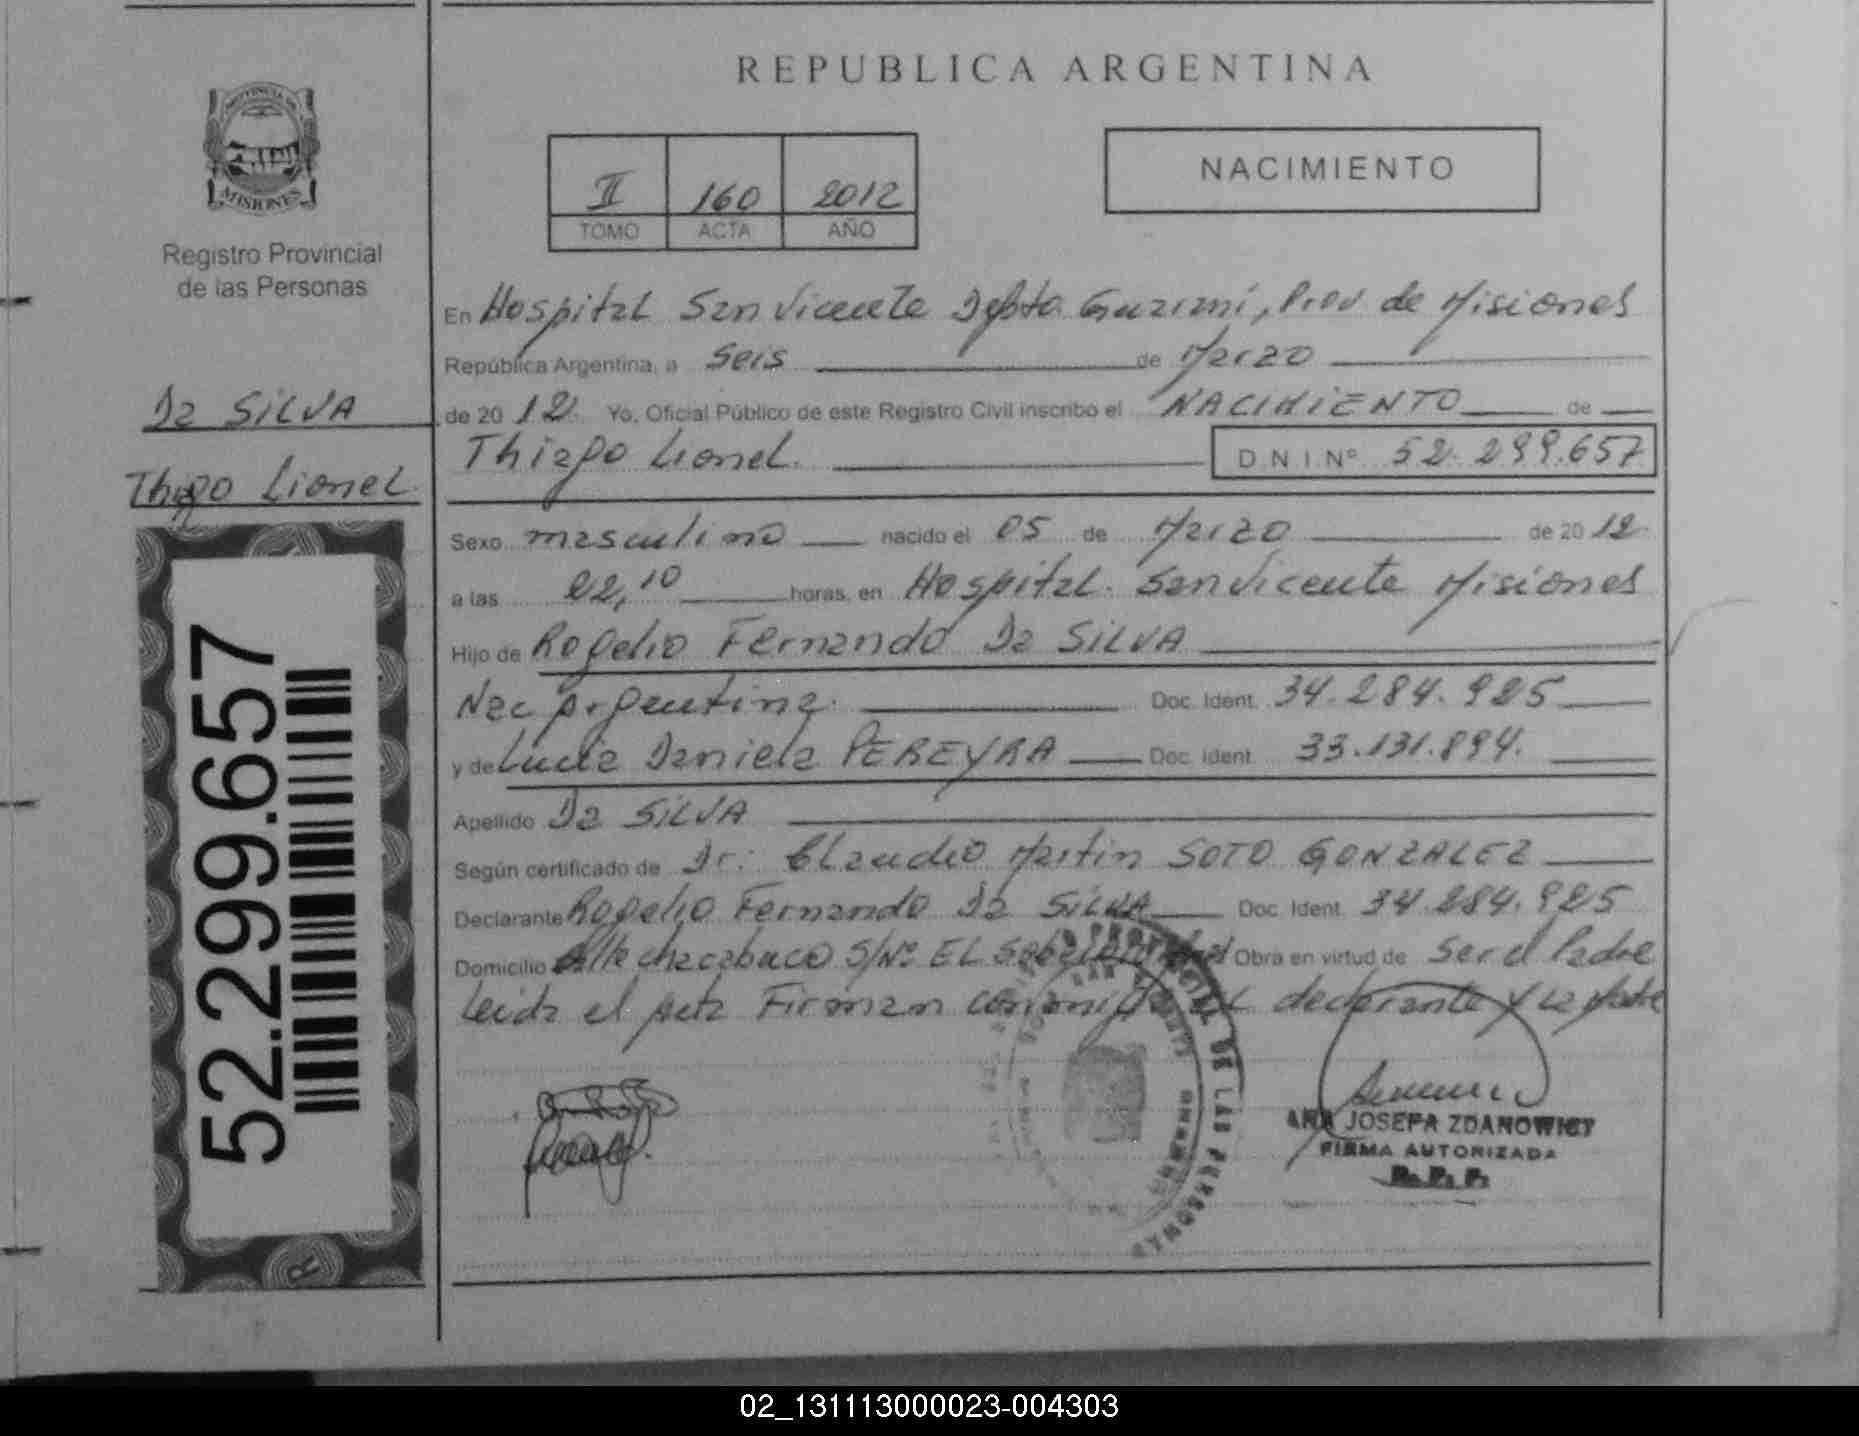 REPUBLICA ARGENTINA
PROVINCIA DE
MISIONES
Registro Provincial
de las Personas
II 160 2012
TOMO ACTA AÑO
NACIMIENTO
Da SILVA
Thiago Lionel
52.299.657
R
En Hospital San Vicente Dpto Guarani, Prov de Misiones
República Argentina, a Seis de Marzo
de 2012 Yo, Oficial Público de este Registro Civil inscribo el NACIMIENTO de
Thiago Lionel. D N I Nº 52.299.657
Sexo masculino nacido el 05 de Marzo de 2012
a las 02,10 horas, en Hospital San Vicente Misiones
Hijo de Rogelio Fernando Da SILVA
Nac Argentina. Doc. Ident. 34.284.925
y de Lucia Daniela PEREYRA Doc. Ident. 33.131.894.
Apellido Da SILVA
Según certificado de Dr: Claudio Martin SOTO GONZALEZ
Declarante Rogelio Fernando Da SILVA Doc. Ident. 34.284.925
Domicilio Calle chacabuco S/Nº EL Obra en virtud de Ser el Padre
Leida el acta Firman conmigo el declarante y la Madre
PROVINCIAL DE LAS PERSONAS
ANA JOSEFA ZDANOWICT
FIRMA AUTORIZADA
R. P. P.
02_131113000023-004303